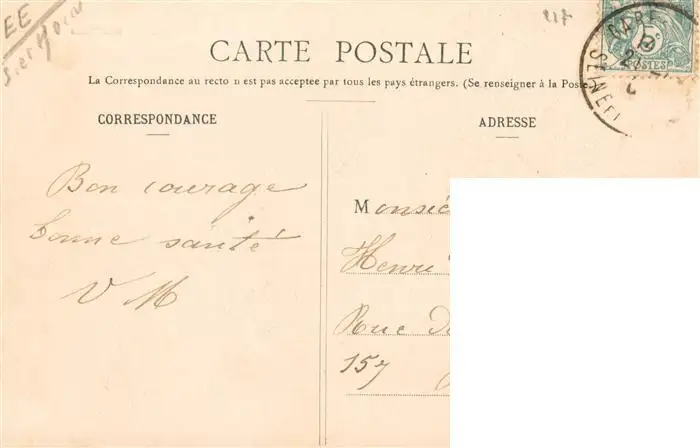 EE
217
CARTE POSTALE
La Correspondance au recto n est pas acceptée par tous les pays étrangers. (Se renseigner à la Poste.
CORRESPONDANCE
ADRESSE
GARE
POSTES
Bon courage
bonne santé
V M
Monsie
Henri
Rue d
157